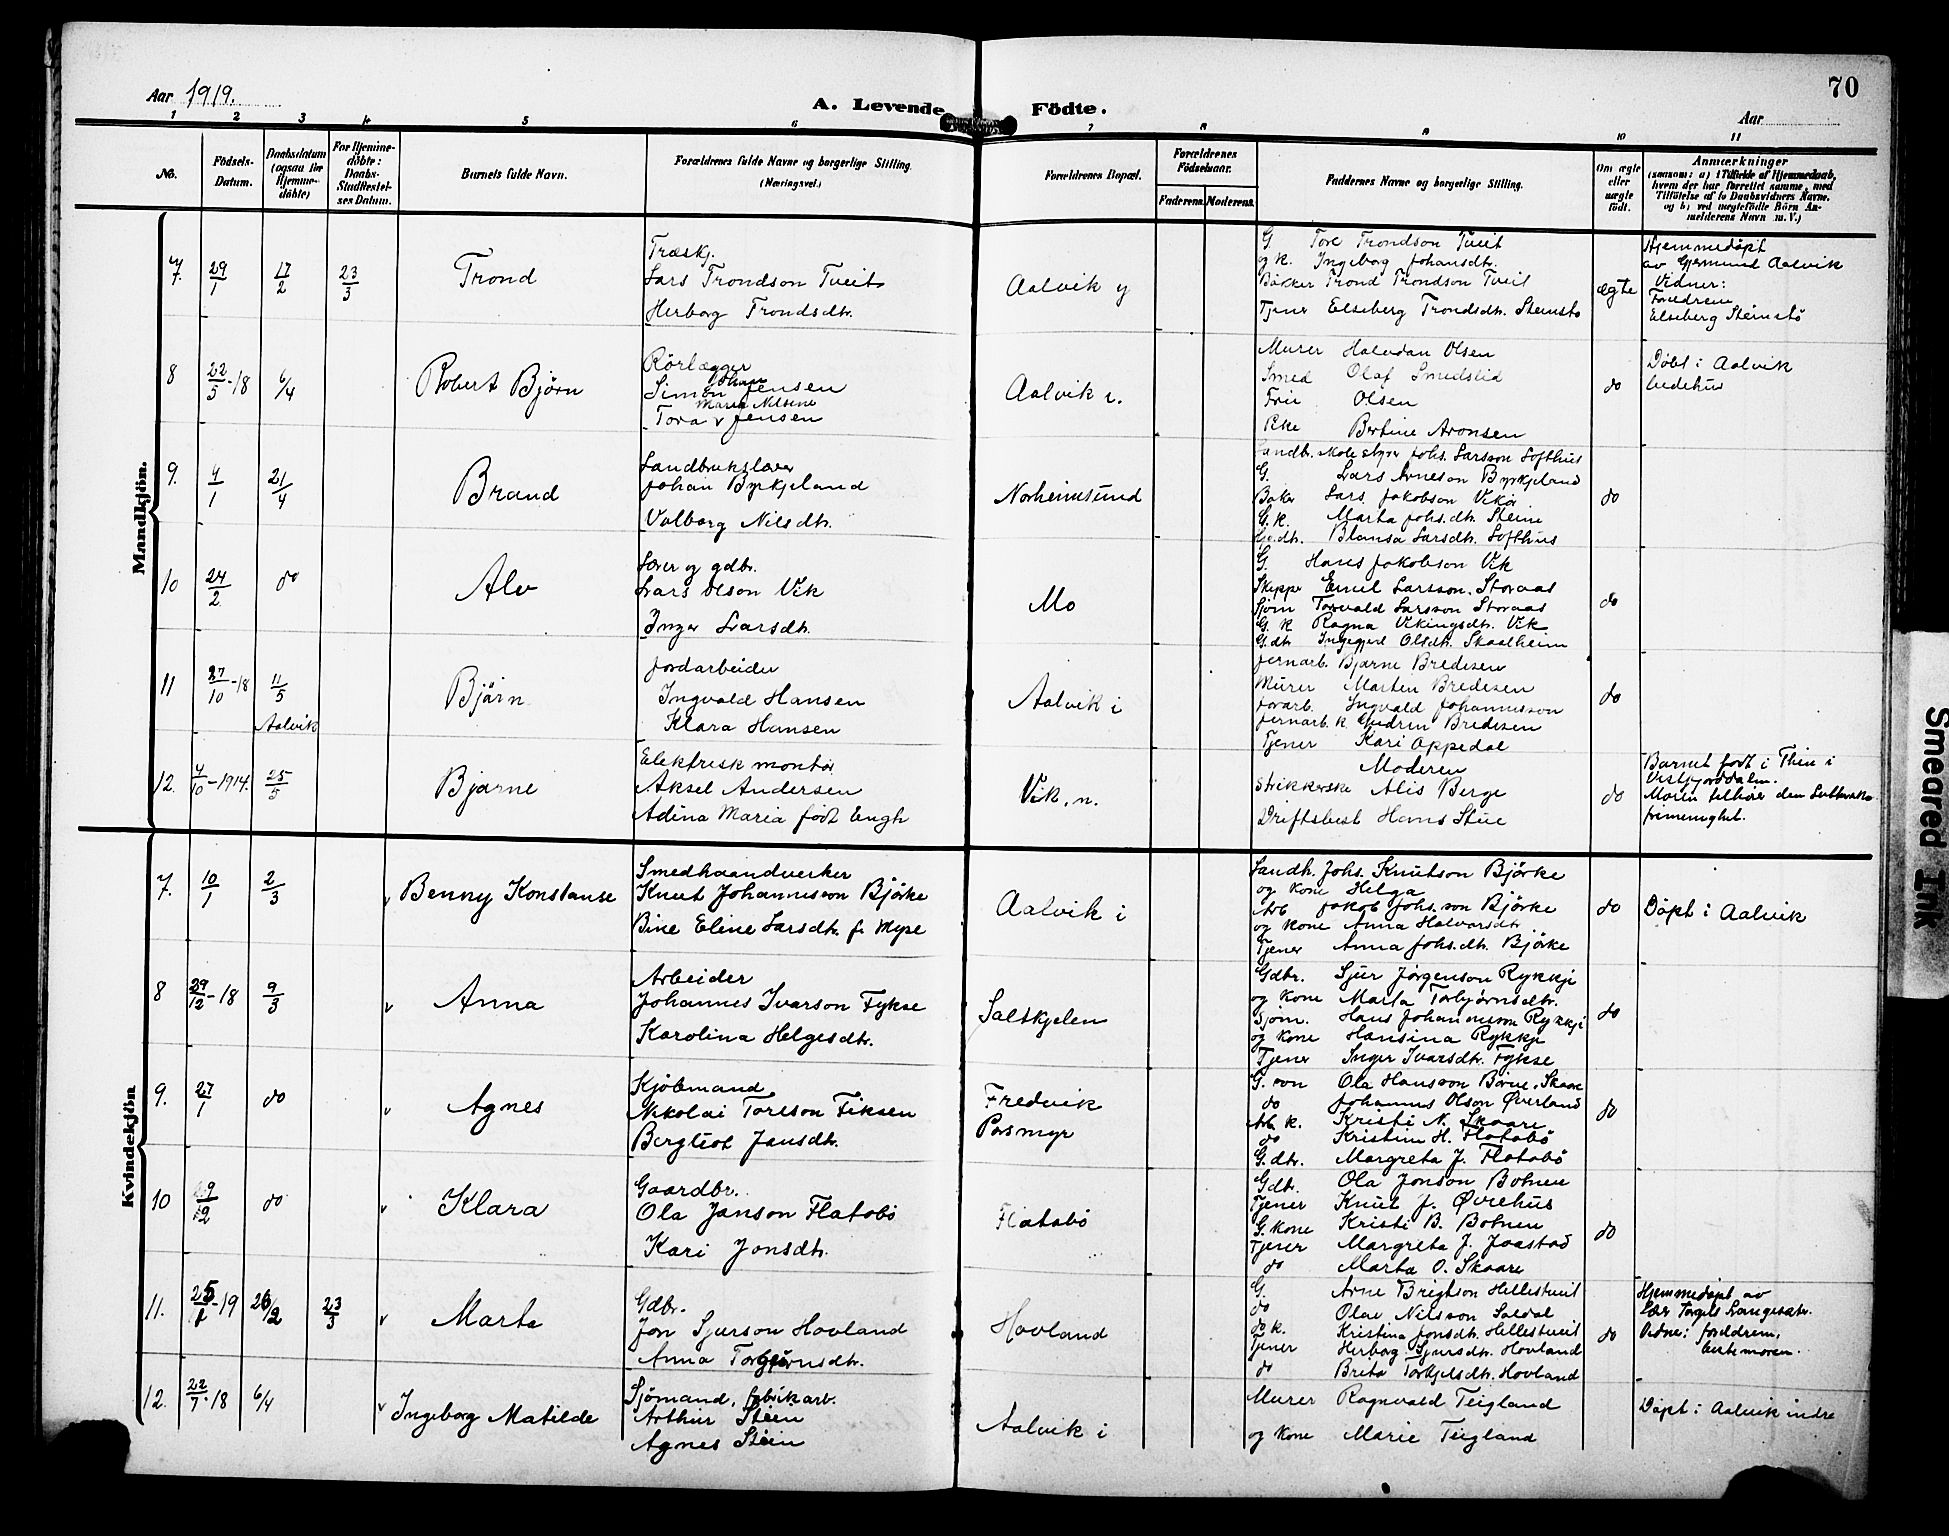 70
Aar 1919.
A. Levende Födte.
Aar
1 2 3 4 5 6 7 8 9 10 11
No.
Födsels-Datum.
Daabsdatum (ogsaa for Hjemme-döbte)
For Hjemme-döbte: Daabs-Stadfæstel-ses Datum.
Barnets fulde Navn.
Forældrenes fulde Navne og borgerlige Stilling. (Næringsvei.)
Forældrenes Bopæl.
Forældrenes Födselsaar.
Faderens. Moderens.
Faddernes Navne og borgerlige Stilling.
Om ægte eller uægte födt.
Anmærkninger
(saasom: a) i Tilfælde af Hjemmedaab,
hvem der har forrettet samme, med
Tilföielse af to Daabsvidners Navne.
og b) ved uægtefödte Börn An-
melderens Navn m. V.)
Mandkjön.
7. 29/1 17/2 23/3 Trond
Træskj.
Lars Trondson Tveit
Herborg Trondsdtr.
Aalvik y
G. Tore Trondson Tveit
og k. Ingeborg Johansdtr.
Bakker Trond Trondson Tveit
Tjener Elseberg Trondsdtr. Steinstø
ægte
Hjemmedøpt
av Gjermund Aalvik
Vidner:
Foreldrene
Elseberg Steinstö
8 22/5-18 6/4 Robert Bjørn
Rörlægger
Simon Johan Jensen
Maria Nilsine
Tora v Jensen
Aalvik i.
Murer Halvdan Olsen
Smed Olaf Smedslid
Frie Olsen
Pike Bertine Aronsen
do
Döbt i Aalvik
bedehus
9. 4/1 21/4 Brand
Landbrukslærer
Johan Byrkjeland
Valborg Nilsdtr.
Norheimsund
Landbr. skolestyrer Johs. Larsson Lofthus
G. Lars Arneson Byrkjeland
Baker Lars Jakobson Vikör
G. k. Marta Johs.dtr. Steine
Gje.dtr. Blansa Larsdtr. Lofthus
do
10 24/2 do Alv
Lærer og gdbr.
Lars Olson Vik
Inger Larsdtr.
Mo
G. Hans Jakobson Vik
Skipper Emil Larsson Storaas
Sjöm Torvald Larsson Storaas
G. k Ragna Vikingsdtr. Vik
G. dtr Ingegjerd Olsdtr. Skaalheim
do
11 27/10-18 11/5 Aalvik Bjørn
Jordarbeider
Ingvald Hansen
Klara Hansen
Aalvik i
Jernarb. Bjarne Bredesen
Murer Marten Bredesen
Jorarb. Ingvald Johannesson
Jernarb. k. Gudrun Bredesen
Tjener Kari Appedal
do
12. 4/10-1914. 25/5 Bjarne
Elektrisk montør
Aksel Andersen
Adina Maria født Engh
Vik, n.
Moderen
Strikkerske Alis Berge
Driftsbest Hans Stue
do
Barnet født i Thin i
Vestfjorddalen.
Moren tilhører den Lutherske
frimenighet.
Kvindekjön
7. 10/1 2/3 Benny Konstanse
Smedhaandverker
Knut Johannesson Bjørke
Bine Eline Larsdtr. f. Myse
Aalvik i
Landh. Johs. Knutson Bjørke
og kone Helga
Arb Jakob Johs.son Bjørke
og kone Anna Halvorsdtr
Tjener Anna Johs.dtr. Bjørke
do
Döpt i Aalvik
8 29/12-18 9/3 Anna
Arbeider
Johannes Ivarson Fykse
Karolina Helgesdtr.
Saltkjelen
Gdbr. Sjur Jørgenson Rykkje
og kone Marta Torbjørnsdtr.
Sjöm. Hans Johannesson Rykkje
og kone Hansina Rykkje
Tjener Inger Ivarsdtr. Fykse
do
9. 27/1 do Agnes
Kjöbmand
Nikolai Torleson Fiksen
Bergliot Jansdtr.
Fredvik
Posmyr
G. son Ola Hansson Börve, Skaare
do Johannes Olson Øverland
Arb k. Kristi N. Skaare
do Kristine H. Flotabö
G. dtr. Margreta J. Flatabö
do
10 do Klara
Gaardbr.
Ola Janson Flatabö
Kari Jonsdtr.
Flatabö
Gdbr. Ola Jonson Botnen
Tjener Knut J. Øvrehus
G. kone Kristi B. Botnen
Tjener Margreta J. Jaastad
do Marta O. Skaare
do
11. 25/1-19 26/2 23/3 Marta
Gdbr.
Jon Sjurson Hovland
Anna Torbjørnsdtr.
Hovland
G. Arne Brigtson Hellestveit
do Olav Nilsson Soldal
do k. Kristina Jonsdtr. Hellestveit
Tjener Herborg Sjursdtr. Hovland
do Brita Torkjelsdtr. Hovland
do
Hjemmedøpt av
Lær Torgils Langesæter.
Vidne: foreldrene,
bestemoren.
12. 22/7-18 6/4 Ingeborg Matilde
Sjömand, fabrikarb.
Arthur Steen
Agnes Steen
Aalvik i
Murer Ragnvald Teigland
og kone Marie Teigland
Döpt i Aalvik indre
Smeared Ink